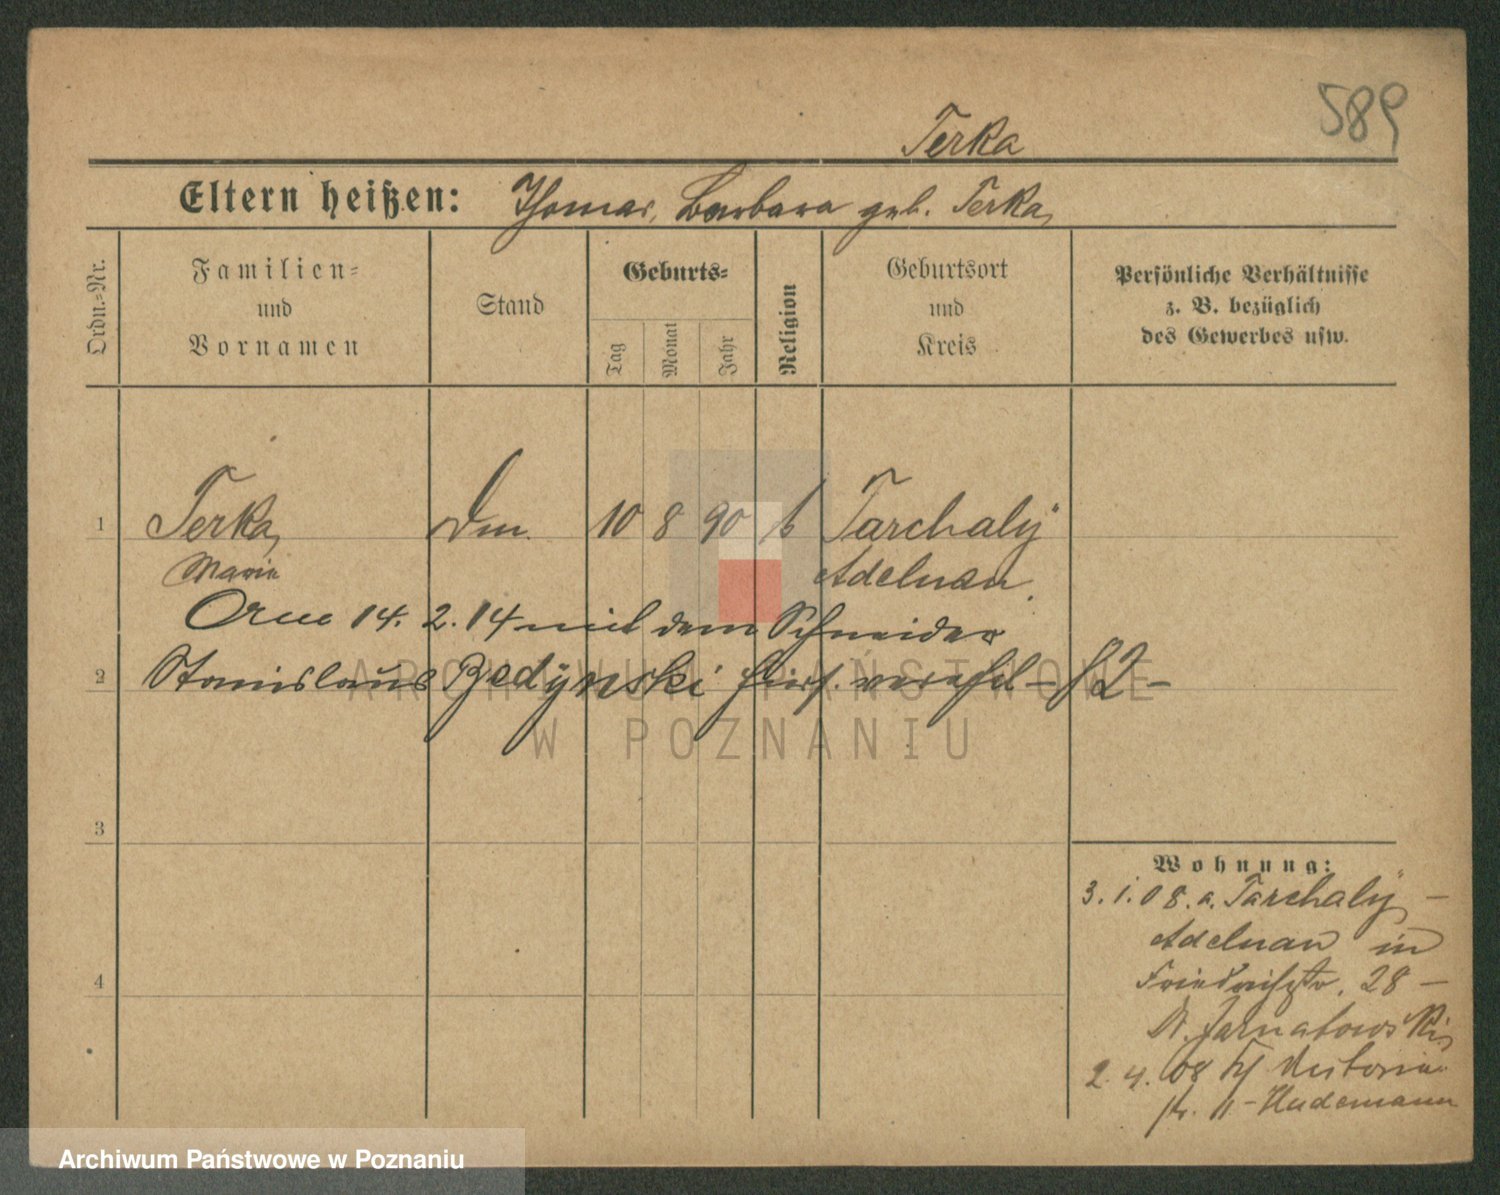 589
Terka
Eltern heißen: Thomas, Barbara geb. Terka,
Ordn.-Nr.
Familien-
und
Vornamen
Stand
Geburts-
Tag
Monat
Jahr
Religion
Geburtsort
und
Kreis
Persönliche Verhältnisse
z. B. bezüglich
des Gewerbes usw.
1 Terka, 10 8 90 Tarchaly
Marie Adelnau.
14. 2. 14 mit dem Schneider
2 Stanislaus Bedynski hier verehel. 82 –
ARCHIWUM PAŃSTWOWE
W POZNANIU
3
4
Wohnung:
3. 1. 08. a. Tarchaly –
Adelnau in
Friedrichstr. 28 –
Jarnatowski,
2. 4. 08 Victoria
str. 11 – Hudemann
Archiwum Państwowe w Poznaniu